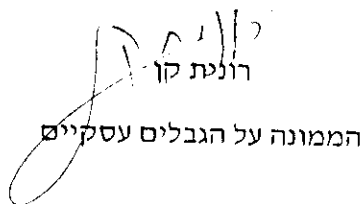 רונית קן
הממונה על הגבלים עסקיים